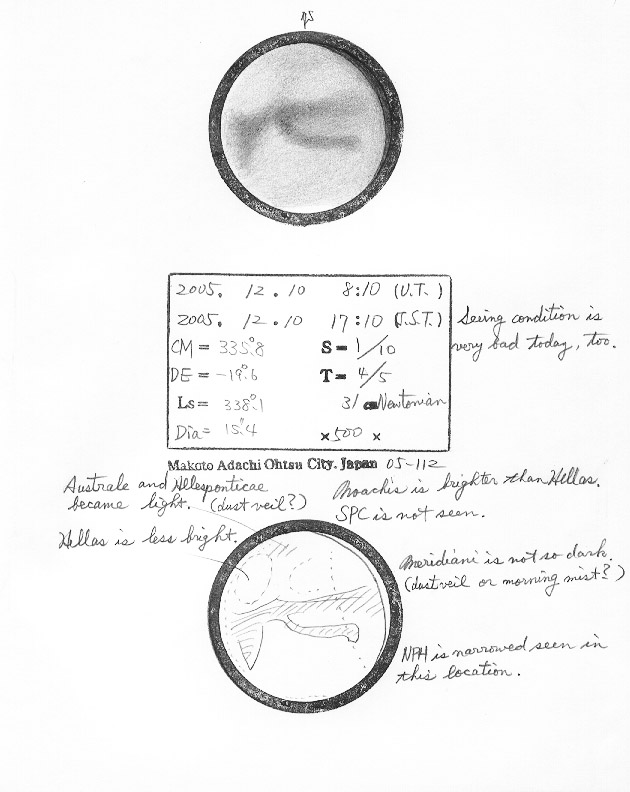 2005. 12. 10 8:10 (U.T.)
2005. 12. 10 17:10 (J.S.T.)
CM = 335.°8 S = 1/10
DE = -19.°6 T = 4/5
Ls = 338.°1 31 Newtonian
Dia = 15."4 ×500 ×
Seeing condition is
very bad today, too.
Makoto Adachi Ohtsu City. Japan 05-112
Australe and Hellesponticae
became light. (dust veil?)
Hellas is less bright.
Noachis is brighter than Hellas.
SPC is not seen.
Meridiani is not so dark.
(dust veil or morning mist?)
NPH is narrowed seen in
this location.